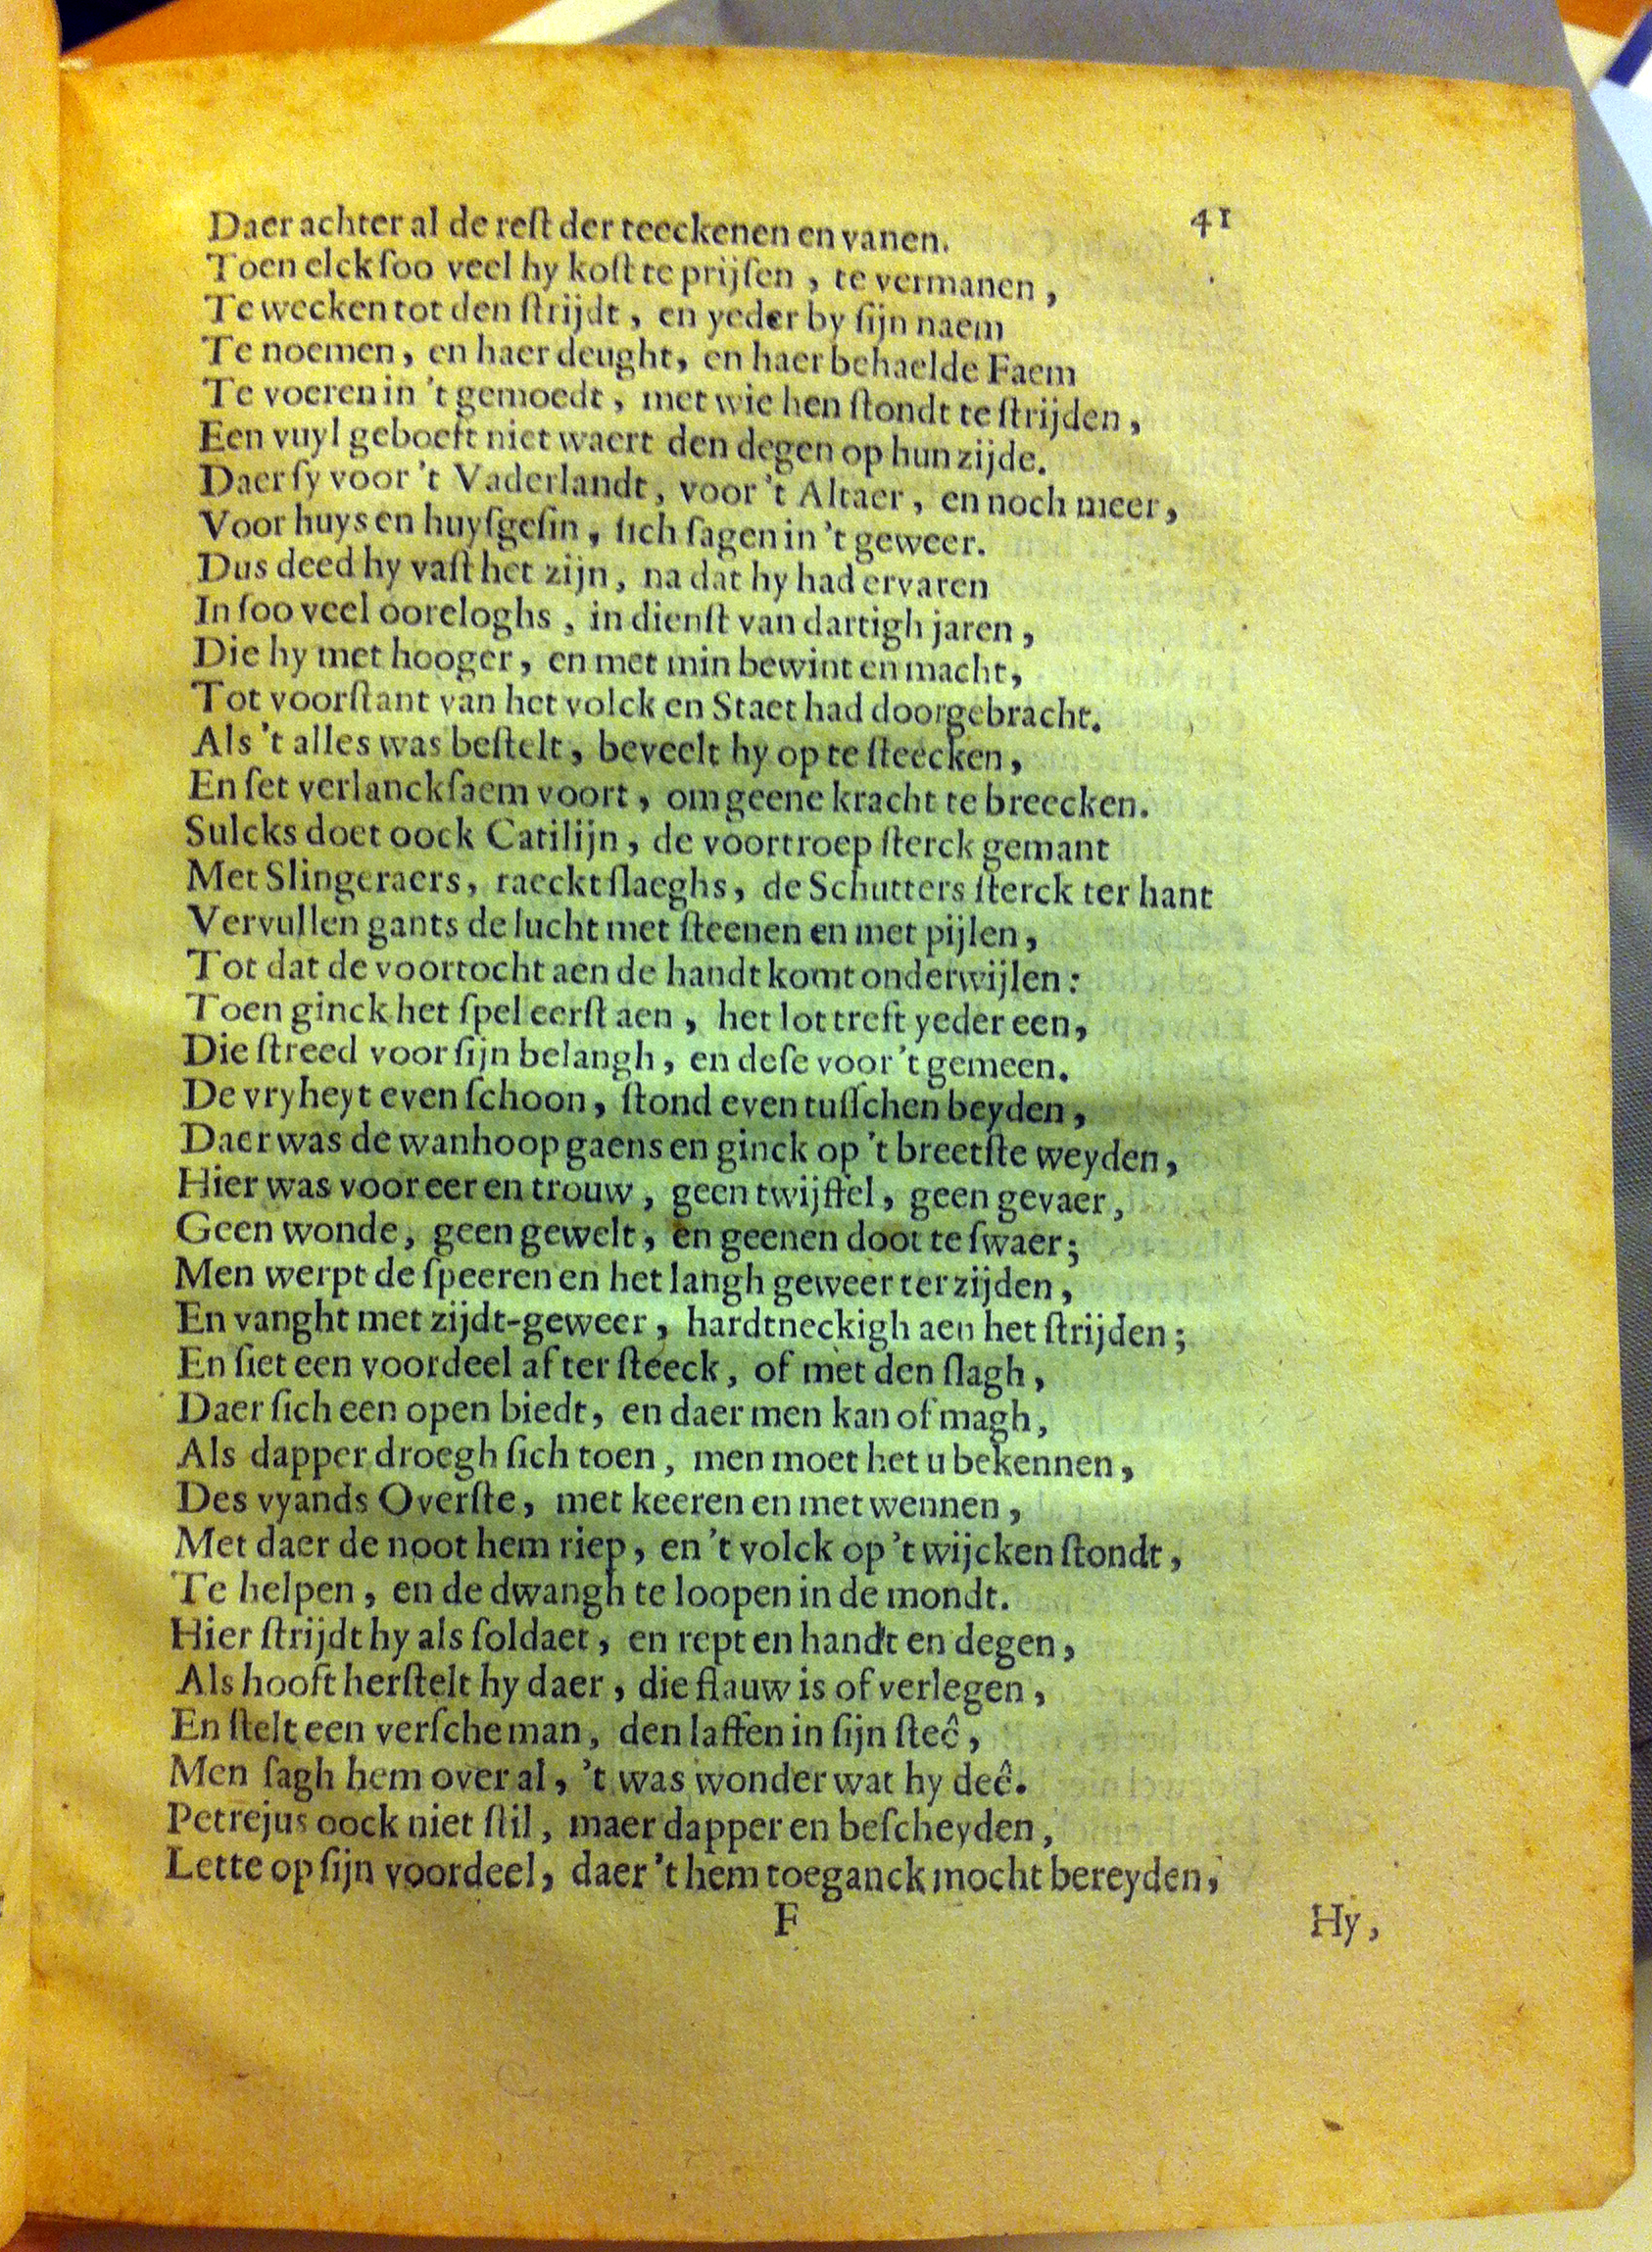 41
Daer achter al de reſt der teeckenen en vanen.
Toen elck ſoo veel hy koſt te prijſen, te vermanen,
Te wecken tot den ſtrijdt, en yeder by ſijn naem
Te noemen, en haer deught, en haer behaelde Faem
Te voeren in 't gemoedt, met wie hen ſtondt te ſtrijden,
Een vuyl geboeft niet waert den degen op hun zijde.
Daer ſy voor 't Vaderlandt, voor 't Altaer, en noch meer,
Voor huys en huyſgeſin, ſich ſagen in 't geweer.
Dus deed hy vaſt het zijn, na dat hy had ervaren
In ſoo veel ooreloghs, in dienſt van dartigh jaren,
Die hy met hooger, en met min bewint en macht,
Tot voorſtant van het volck en Staet had doorgebracht.
Als 't alles was beſtelt, beveelt hy op te ſteecken,
En ſet verlanckſaem voort, om geene kracht te breecken.
Sulcks doet oock Catilijn, de voortroep ſterck gemant
Met Slingeraers, raeckt ſlaeghs, de Schutters ſterck ter hant
Vervullen gants de lucht met ſteenen en met pijlen,
Tot dat de voortocht aen de handt komt onderwijlen:
Toen ginck het ſpel eerſt aen, het lot treft yeder een,
Die ſtreed voor ſijn belangh, en deſe voor 't gemeen.
De vryheyt even ſchoon, ſtond even tuſſchen beyden,
Daer was de wanhoop gaens en ginck op 't breetſte weyden,
Hier was voor eer en trouw, geen twijffel, geen gevaer,
Geen wonde, geen gewelt, en geenen doot te ſwaer;
Men werpt de ſpeeren en het langh geweer ter zijden,
En vanght met zijdt-geweer, hardtneckigh aen het ſtrijden;
En ſiet een voordeel af ter ſteeck, of met den ſlagh,
Daer ſich een open biedt, en daer men kan of magh,
Als dapper droegh ſich toen, men moet het u bekennen,
Des vyands Overſte, met keeren en met wennen,
Met daer de noot hem riep, en 't volck op 't wijcken ſtondt,
Te helpen, en de dwangh te loopen in de mondt.
Hier ſtrijdt hy als ſoldaet, en rept en handt en degen,
Als hooft herſtelt hy daer, die flauw is of verlegen,
En ſtelt een verſche man, den laffen in ſijn ſteê,
Men ſagh hem over al, 't was wonder wat hy deê.
Petrejus oock niet ſtil, maer dapper en beſcheyden,
Lette op ſijn voordeel, daer 't hem toeganck mocht bereyden,
F
Hy,